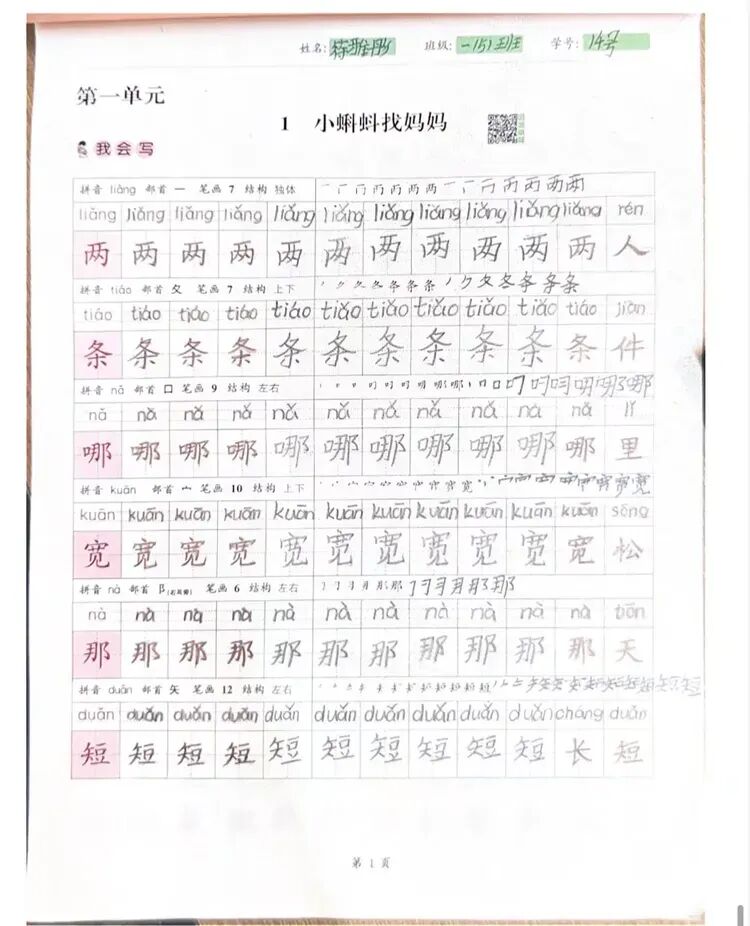 姓名: 班级: 一(5)班 学号: 14号
第一单元
1 小蝌蚪找妈妈
我会写
拼音 liǎng 部首 一 笔画 7 结构 独体
liǎng liǎng liǎng liǎng liǎng liǎng liǎng liǎng liǎng liǎng liǎng rén
两 两 两 两 两 两 两 两 两 两 两 人
拼音 tiáo 部首 夂 笔画 7 结构 上下
tiáo tiáo tiáo tiáo tiáo tiǎo tiáo tiáo tiǎo tiáo tiáo jiàn
条 条 条 条 条 条 条 条 条 条 条 件
拼音 nǎ 部首 口 笔画 9 结构 左右
nǎ nǎ nǎ nǎ nǎ nǎ nǎ nǎ nǎ nǎ nǎ lǐ
哪 哪 哪 哪 哪 哪 哪 哪 哪 哪 哪 里
拼音 kuān 部首 宀 笔画 10 结构 上下
kuān kuān kuān kuān kuān kuān kuān kuān kuān kuān kuān sōng
宽 宽 宽 宽 宽 宽 宽 宽 宽 宽 宽 松
拼音 nà 部首 阝(右耳旁) 笔画 6 结构 左右
nà nà nà nà nà nà nà nà nà nà nà tiān
那 那 那 那 那 那 那 那 那 那 那 天
拼音 duǎn 部首 矢 笔画 12 结构 左右
duǎn duǎn duǎn duǎn duǎn duǎn duǎn duǎn duǎn duǎn cháng duǎn
短 短 短 短 短 短 短 短 短 短 长 短
第 1 页